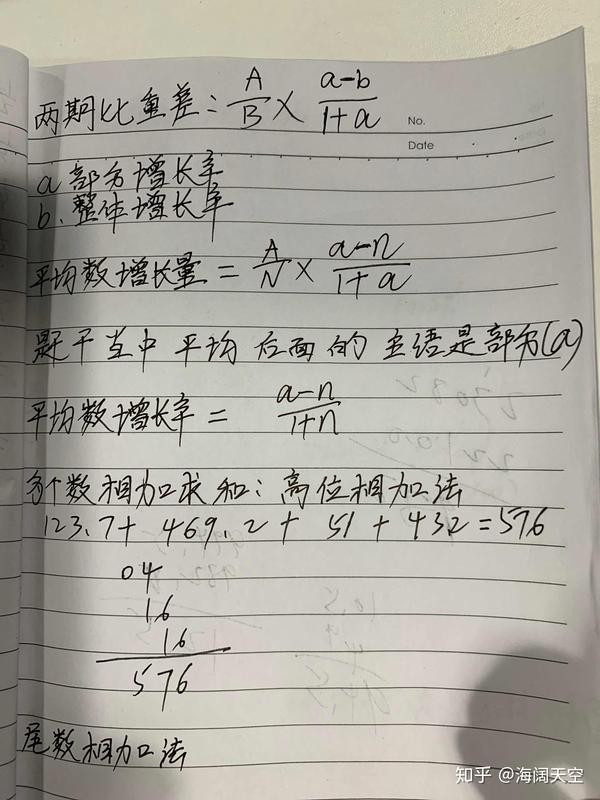 两期比重差: A/B × (a-b)/(1+a)
No.
Date
a 部分增长率
b. 整体增长率
平均数增长量 = A/N × (a-n)/(1+a)
题干当中 平均 后面的 主语是部分(a)
平均数增长率 = (a-n)/(1+n)
多个数相加求和: 高位相加法
123.7+ 469.2+ 51+432=576
04
16
16
576
尾数相加法
知乎 @海阔天空